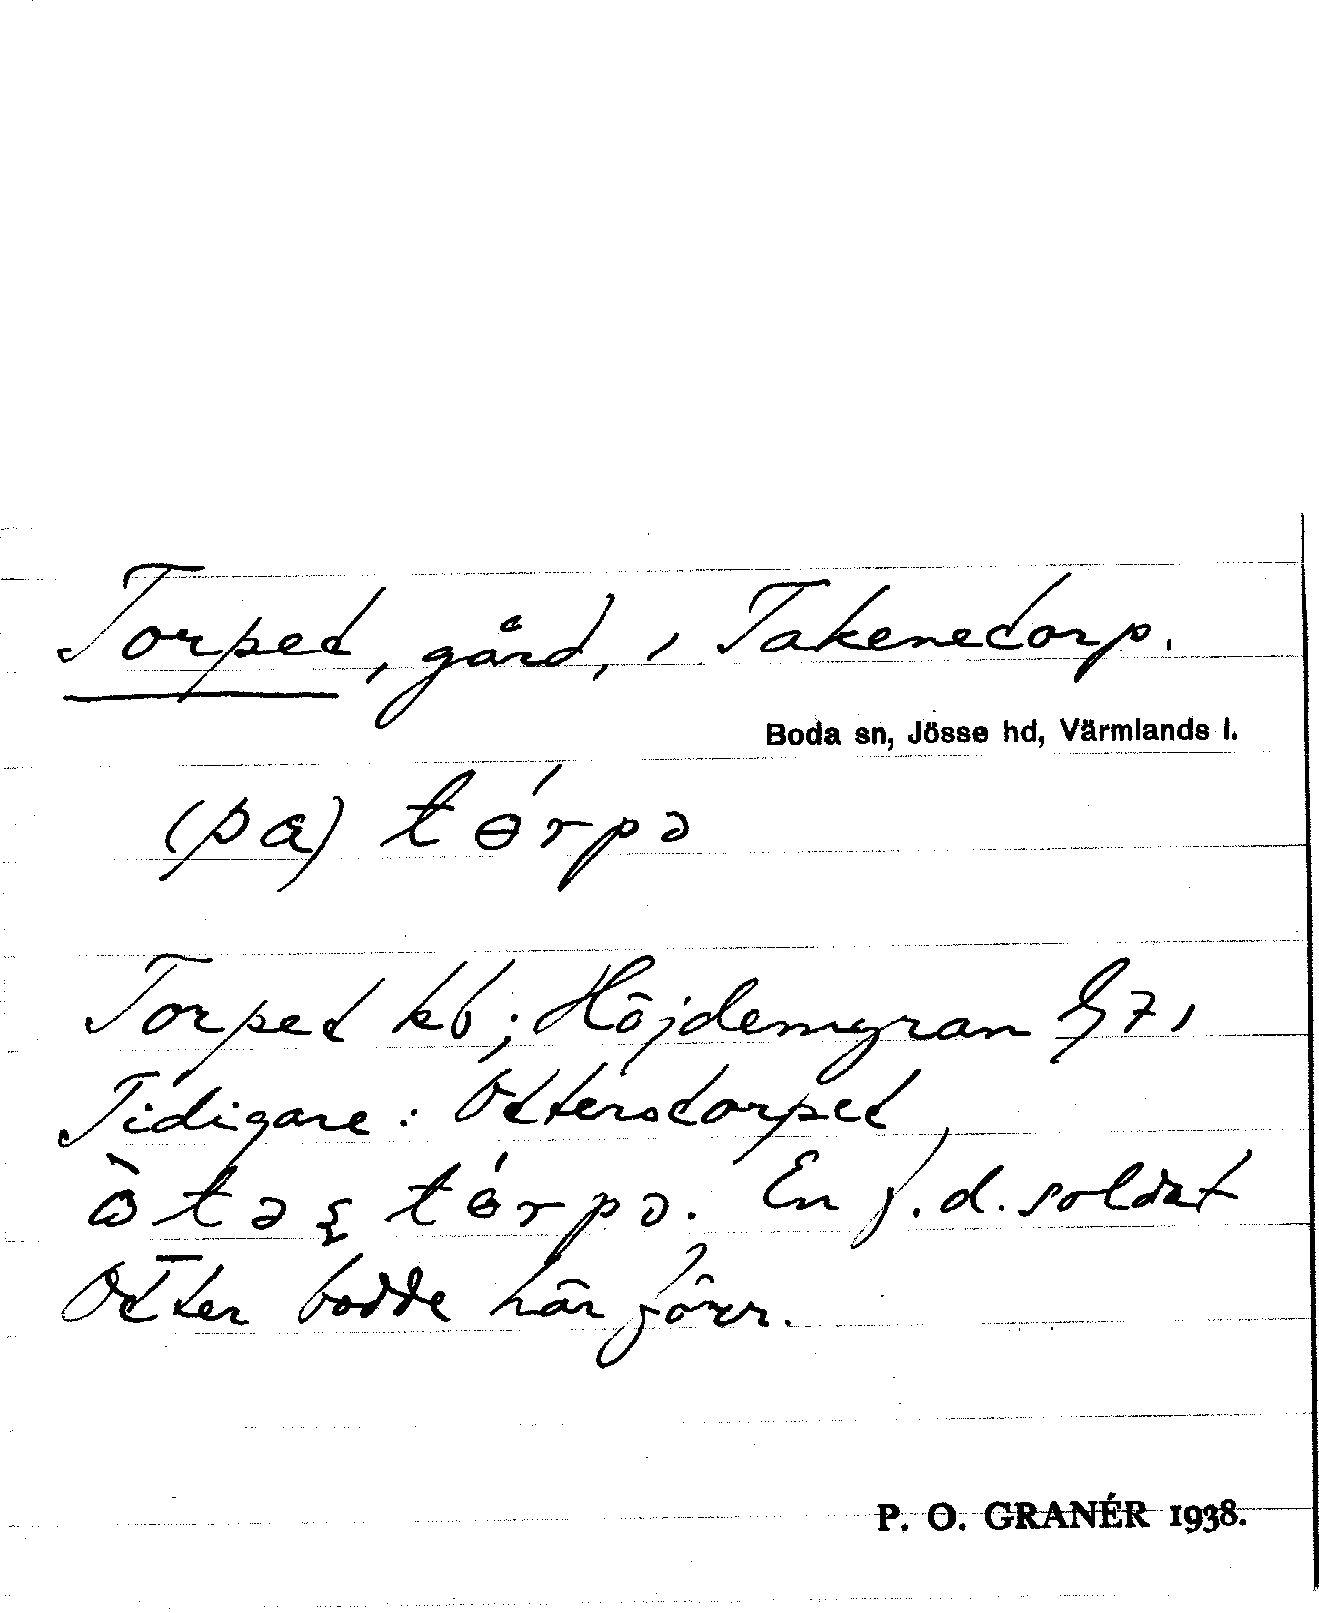 Torpet, gård, i Takenetorp.
Boda sn, Jösse hd, Värmlands l.
(pɑ) tɵ́rpə
Torpet kb; Höjdemyran
Tidigare: Otterstorpet,
tɵ́rpə. En f. d. soldat
Otter bodde här förr.
P. O. GRANÉR 1938.